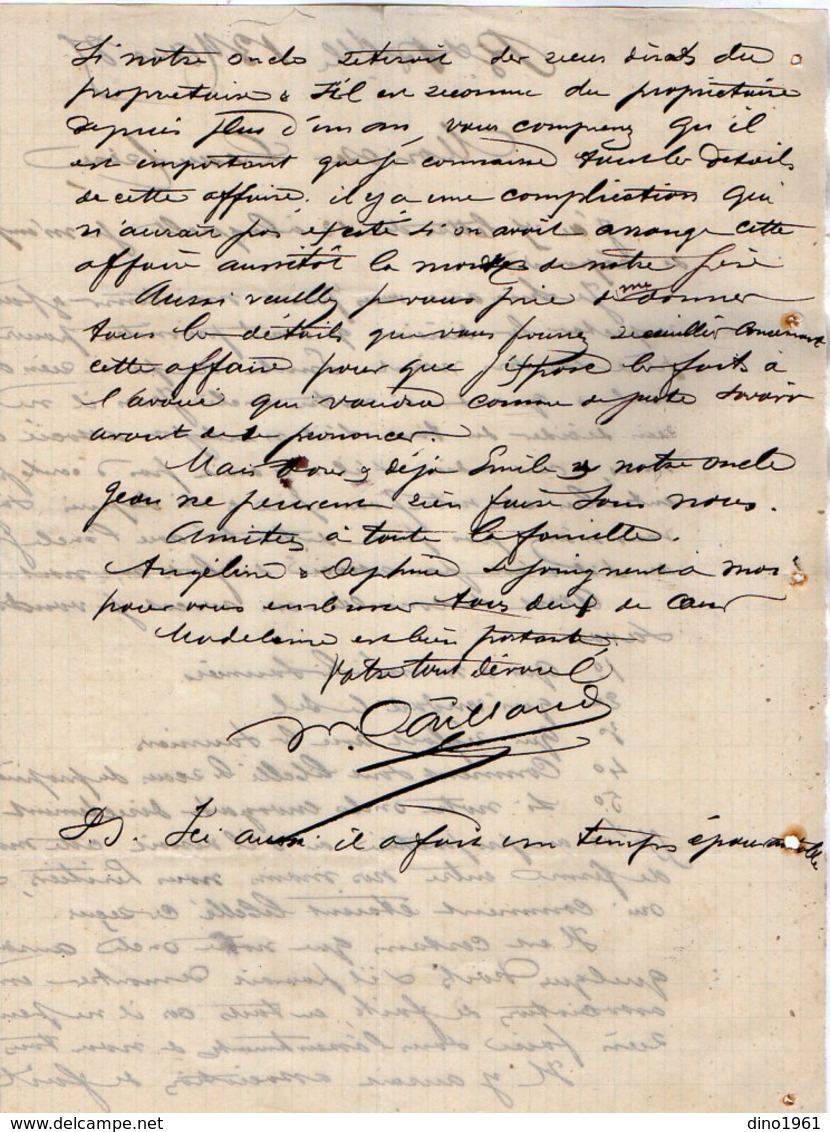 Si notre oncle retirait des reçus directs du
propriétaire & s'il est reconnu du propriétaire
depuis plus d'un an, vous comprenez qu'il
est important que je connaisse tous les détails
de cette affaire. il y a une complication qui
n'aurait pas existé si on avait arrangé cette
affaire aussitôt la mort de notre père
Aussi veuillez je vous prie de me donner
tous les détails que vous pourrez recueillir concernant
cette affaire pour que j'expose les faits à
l'avoué qui voudra comme de juste savoir
avant de se prononcer.
Mais déjà Emile & notre oncle
Jean ne peuvent rien faire sans nous.
Amitiés à toute la famille.
Angéline & Delphine se joignent à moi
pour vous embrasser tous deux de cœur
Madeleine est bien portante
Votre tout dévoué
Caillaud
P.S. Ici aussi il a fait un temps épouvantable
dino1961